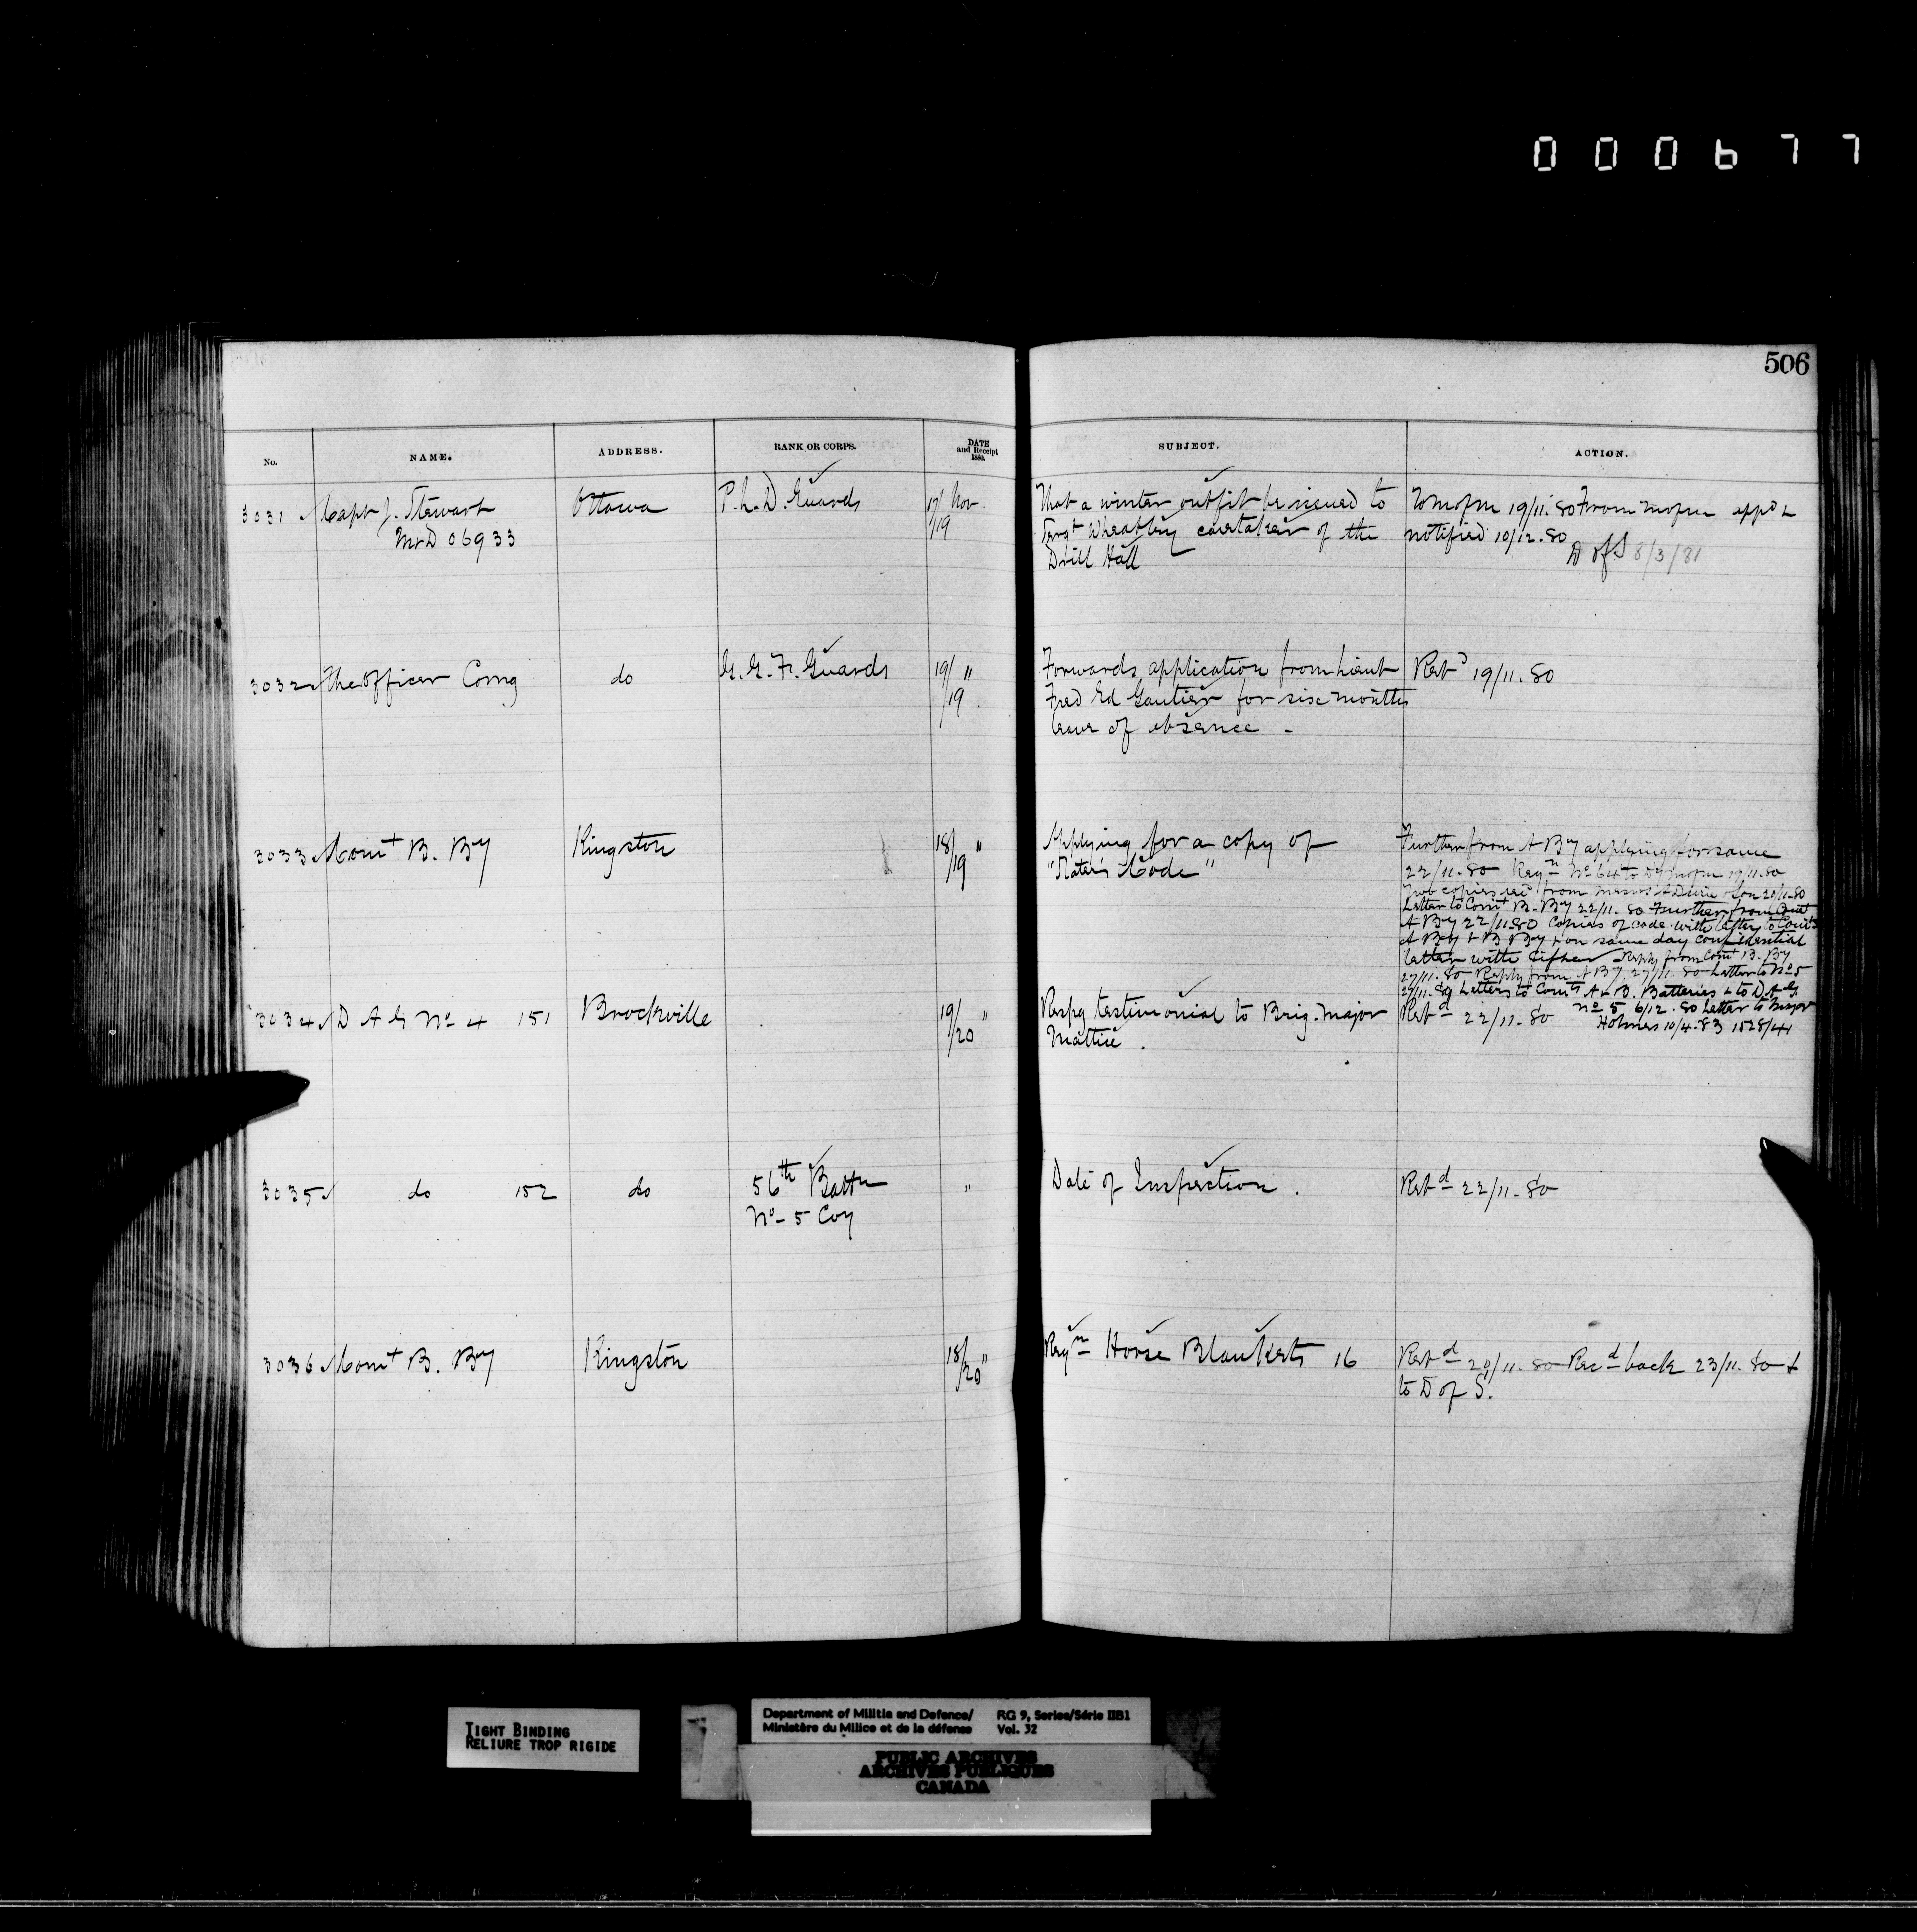 000677
506
No. NAME. ADDRESS. RANK OR CORPS. DATE and Receipt 1880. SUBJECT. ACTION.
3031 Capt J. Stewart Ottawa P. L. D. Guards 17/19 Nov. That a winter outfit be issued to To MofM 19/11.80 From MofM app'd &
McD 06933 Sergt Wheatley caretaker of the notified 10/12.80
Drill Hall D of S 8/3/81
3032 The Officer Comg do G. G. F. Guards 19/19 " Forwards application from Lieut Retd 19/11.80
Fred Ed Gautier for six months
leave of absence -
3033 Comt B. By Kingston 18/19 " Applying for a copy of Further from A By applying for same
"Slater's Code" 22/11.80 Reqn No 64 to Dy MofM 19/11.80
Two copies recd from Messrs & Son 20/11.80
Letter to Comt B. By 22/11.80 Further from Comt
A By 22/11.80 Copies of code with letter to Comts
A By & B By & on same day confidential
letter with cipher Reply from Comt B. By
27/11.80 Reply from A By 27/11.80 Letter to No 5
27/11.80 Letters to Comts A & B. Batteries & to D A G
No 5 6/12.80 Letter to Major
Holmes 10/4.83 1528/41
3034 D A G No 4 151 Brockville 19/20 " Respg testimonial to Brig. Major Retd 22/11.80
Mattice.
3035 do 152 do 56th Battn " Date of Inspection. Retd 22/11.80
No 5 Coy
3036 Comt B. By Kingston 18/20 " Reqn Horse Blankets 16 Retd 20/11.80 Recd back 23/11.80 &
to D of S.
TIGHT BINDING
RELIURE TROP RIGIDE
Department of Militia and Defence/ RG 9, Series/Série IIB1
Ministère du Milice et de la défense Vol. 32
PUBLIC ARCHIVES
ARCHIVES PUBLIQUES
CANADA